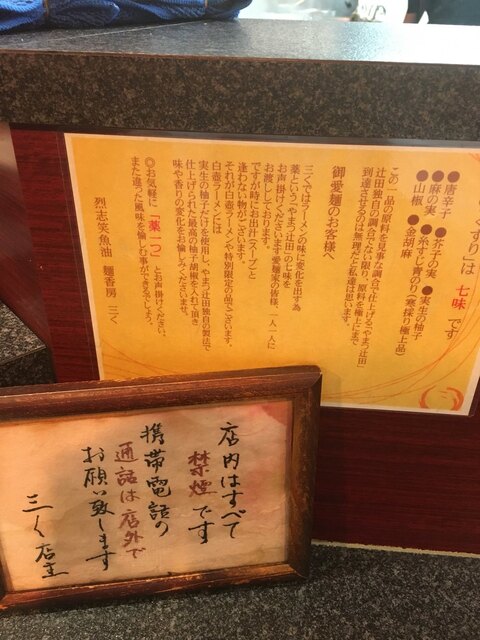 くすり」は 七味 です
●唐辛子 ●芥子の実 ●実生の柚子
●麻の実 ●糸すじ青のり(寒採り極上品)
●山椒 ●金胡麻
この一品の原料を見事な調合で仕上げる「やまつ辻田」
辻田独自の調合でない限り、原料を極上にまで
到達させるのは無理だと私達は思います。
御愛麺のお客様へ
三くではラーメンの味に変化を出す為
薬という『やまつ辻田』の七味を
お声掛けくださいます愛麺家の皆様、一人一人に
お渡ししております。
ですが時にお出汁(スープ)と
逢わない物がございます。
それが白壺ラーメンや特別限定の品でございます。
白壺ラーメンには
実生の柚子だけを使用し、やまつ辻田独自の製法で
仕上げられた最高の柚子胡椒を入れて頂き
味や香りの変化をお愉しみくださいませ。
◎お気軽に「薬一つ」とお声掛けください。
また違った風味を愉しむ事ができるでしょう。
烈志笑魚油 麺香房 三く
店内はすべて
禁煙です
携帯電話の
通話は店外で
お願い致します
三く店主